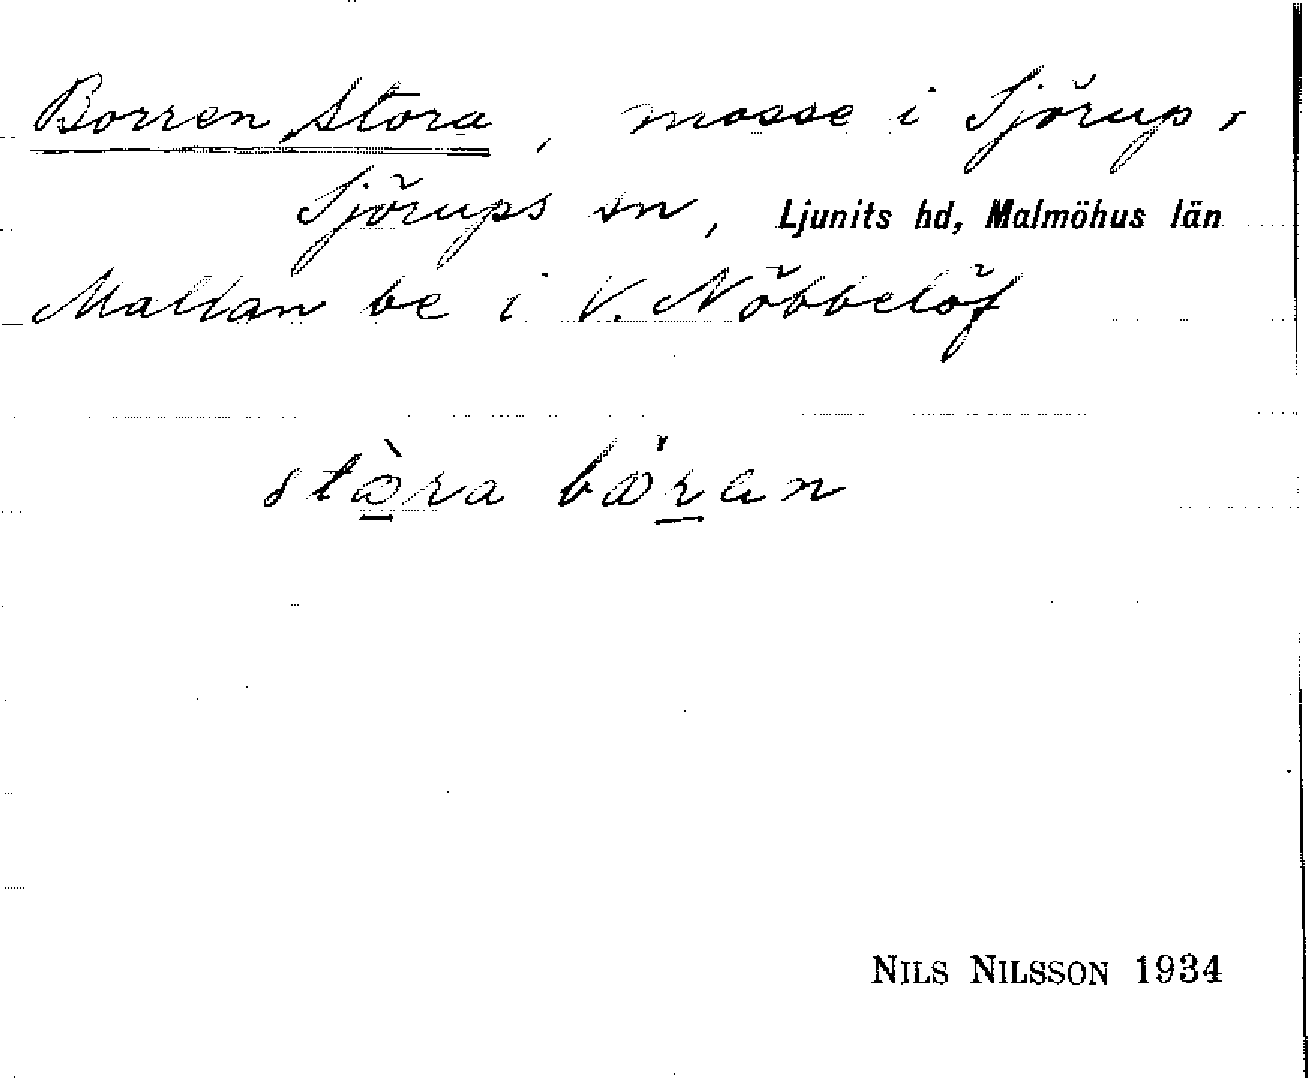 Borren Stora, mosse i Sjörup,
Sjörups sn, Ljunits hd, Malmöhus län
be i V. Nöbbelöf
NILS NILSSON 1934